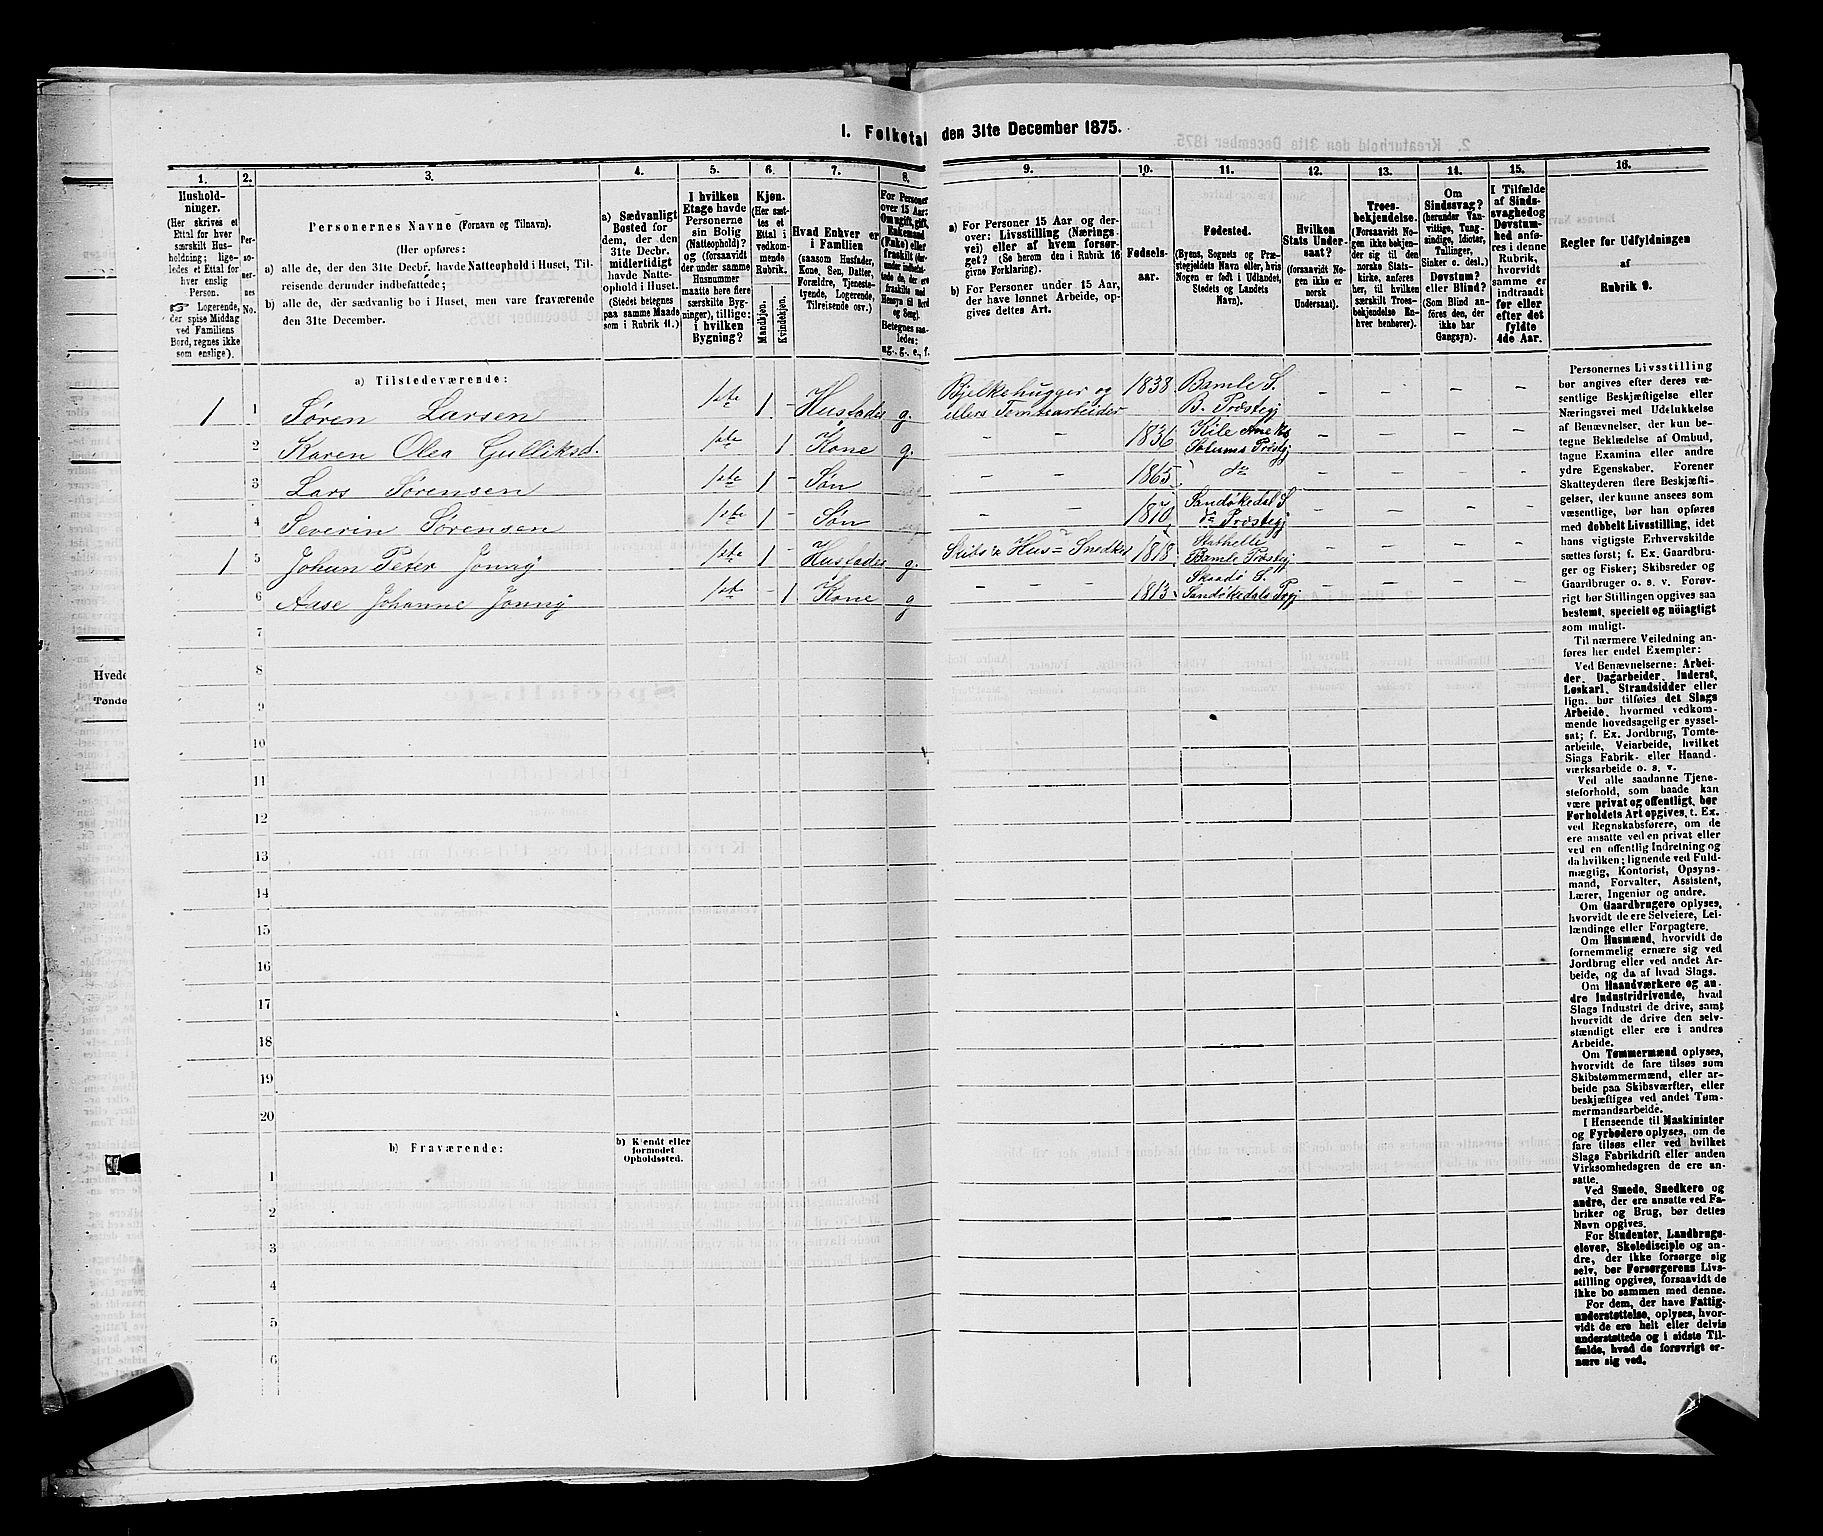 1. Folketal den 31te December 1875.
1.
Hushold-
ninger.
(Her skrives et
Ettal for hver
særskilt Hus-
holdning; lige-
ledes et Ettal for
hver enslig
Person.
Logerende,
der spise Middag
ved Familiens
Bord, regnes ikke
som enslige).
2.
Per-
so-
ner-
nes
No.
3.
Personernes Navne (Fornavn og Tilnavn).
(Her opføres:
a) alle de, der den 31te Decbr. havde Natteophold i Huset, Til-
reisende derunder indbefattede;
b) alle de, der sædvanlig bo i Huset, men vare fraværende
den 31te December.
4.
a) Sædvanligt
Bosted for
dem, der den
31te Decbr.
midlertidigt
havde Natte-
ophold i Huset.
(Stedet betegnes
paa samme Maade
som i Rubrik 11.)
5.
I hvilken
Etage havde
Personerne
sin Bolig
(Natteophold)?
og (forsaavidt
der under samme
Husnummer
maatte være flere
særskilte Byg-
ninger), tillige:
i hvilken
Bygning?
6.
Kjøn.
(Her sæt-
tes et
Ettal i
vedkom-
mende
Rubrik.
Mandkjøn.
Kvindekjøn.
7.
Hvad Enhver er
i Familien
(saasom Husfader,
Kone, Søn, Datter,
Forældre, Tjeneste-
tyende, Logerende,
Tilreisende osv.)
8.
For Personer
over 15 Aar:
Om ugift, gift,
Enkemand
(Enke) eller
fraskilt
Betegnes saa-
ledes:
ug., g., e., f.
9.
a) For Personer 15 Aar og der-
over: Livsstilling (Nærings-
vei) eller af hvem forsør-
get? (Se herom den i Rubrik 16
givne Forklaring).
b) For Personer under 15 Aar,
der have lønnet Arbeide, op-
gives dettes Art.
10.
Fødsels-
aar.
11.
Fødested.
(Byens, Sognets og Præ-
stegjeldets Navn eller, hvis
Nogen er født i Udlandet,
Stedets og Landets
Navn).
12.
Hvilken
Stats Under-
saat?
(forsaavidt No-
gen ikke er
norsk
Undersaat).
13.
Troes-
bekjendelse.
(Forsaavidt No-
gen ikke bekjen-
der sig til den
norske Stats-
kirke, anføres
her, til hvilken
særskilt Troes-
bekjendelse En-
hver henhører).
14.
Om
Sindssvag?
(herunder Van-
vittige, Tung-
sindige, Idioter,
Tullinger,
Sinker o. desl.)
Døvstum?
eller Blind?
(Som Blind an-
føres den, der
ikke har
Gangsyn).
15.
I Tilfælde
af Sinds-
svaghed og
Døvstum-
hed anfø-
res i denne
Rubrik,
hvorvidt
samme er
indtraadt
før eller
efter det
fyldte
4de Aar.
16.
Regler for Udfyldningen
af
Rubrik 9.
a) Tilstedeværende:
1 1 Søren Larsen 1ste 1 - Husfader g. Bjelkehugger og 1838 Bamle S. - - - -
ellers Tomtearbeider B. Præstegj
2 Karen Olea Gulliksd. 1ste 1 Kone g. - - 1836 Solums Præstgj - - - -
3 Lars Sørensen 1ste 1 - Søn - - 1865 do - - - -
4 Severin Sørensen 1ste 1 - Søn - - 1870 Sandøkedal S. - - - -
do Præstegj
1 5 Johan Peter Jonny 1ste 1 Husfader g. Skibs & Hus= Snedker 1818 Stathelle - - - -
Bamle Præstgj
6 Anse Johanne Jonny 1ste - 1 Kone g - - - 1813 Skaadø S. - - - -
Sandøkedals Pgj
7
8
9
10
11
12
13
14
15
16
17
18
19
20
b) Fraværende:
b) Kjendt eller
formodet
Opholdssted.
1
2
3
4
5
6
Personernes Livsstilling
bør angives efter deres væ-
sentlige Beskjæftigelse eller
Næringsvei med Udelukkelse
af Benævnelser, der kun be-
tegne Beklædelse af Ombud,
tagne Examina eller andre
ydre Egenskaber. Forener
Skatteyderen flere Beskjæfti-
gelser, der kunne ansees som
væsentlige, bør han opføres
med dobbelt Livsstilling, idet
hans vigtigste Erhvervskilde
sættes først; f. Ex. Gaardbru-
ger og Fisker; Skibsreder og
Gaardbruger o. s. v. Forøv-
rigt bør Stillingen opgives saa
bestemt, specielt og nøiagtigt
som muligt.
Til nærmere Veiledning an-
føres her endel Exempler:
Ved Benævnelserne: Arbei-
der, Dagarbeider, Inderst,
Løskarl, Strandsidder eller
lign. bør tilføies det Slags
Arbeide, hvormed vedkom-
mende hovedsagelig er syssel-
sat; f. Ex. Jordbrug, Tomte-
arbeide, Veiarbeide, hvilket
Slags Fabrik- eller Haand-
værksarbeide o. s. v.
Ved alle saadanne Tjene-
steforhold, som baade kan
være privat og offentligt, bør
Forholdets Art opgives, t. Ex.
ved Regnskabsførere, om de
ere ansatte ved en privat eller
ved en offentlig Indretning og
da hvilken; lignende ved Fuld-
mægtig, Kontorist, Opsyns-
mand, Forvalter, Assistent,
Lærer, Ingeniør og andre.
Om Gaardbrugere oplyses,
hvorvidt de ere Selveiere, Lei-
lændinge eller Forpagtere.
Om Husmænd, hvorvidt de
fornemmelig ernære sig ved
Jordbrug eller ved andet Ar-
beide, og da af hvad Slags.
Om Haandværkere og an-
dre Industridrivende, hvad
Slags Industri de drive, samt
hvorvidt de drive den selv-
stændigt eller ere i andres
Arbeide.
Om Tømmermænd oplyses,
hvorvidt de fare tilsøs som
Skibstømmermænd, eller ar-
beide paa Skibsværfter, eller
beskjæftiges ved andet Tøm-
mermandsarbeide.
I Henseende til Maskinister
og Fyrbødere oplyses, om de
fare tilsøs eller ved hvilket
Slags Fabrikdrift eller anden
Virksomhedsgren de ere an-
satte.
Ved Smede, Snedkere og
andre, der ere ansatte ved Fa-
briker og Brug, bør dettes
Navn opgives.
For Studenter, Landbrugs-
elever, Skoledisciple og an-
dre, der ikke forsørge sig
selv, bør Forsørgerens Livs-
stilling opgives, forsaavidt de
ikke bo sammen med denne.
For dem, der have Fattig-
understøttelse, oplyses, hvor-
vidt de ere helt eller delvis
understøttede og i sidste Til-
fælde, hvad de forøvrigt er-
nære sig ved.
Hvede
Tønde